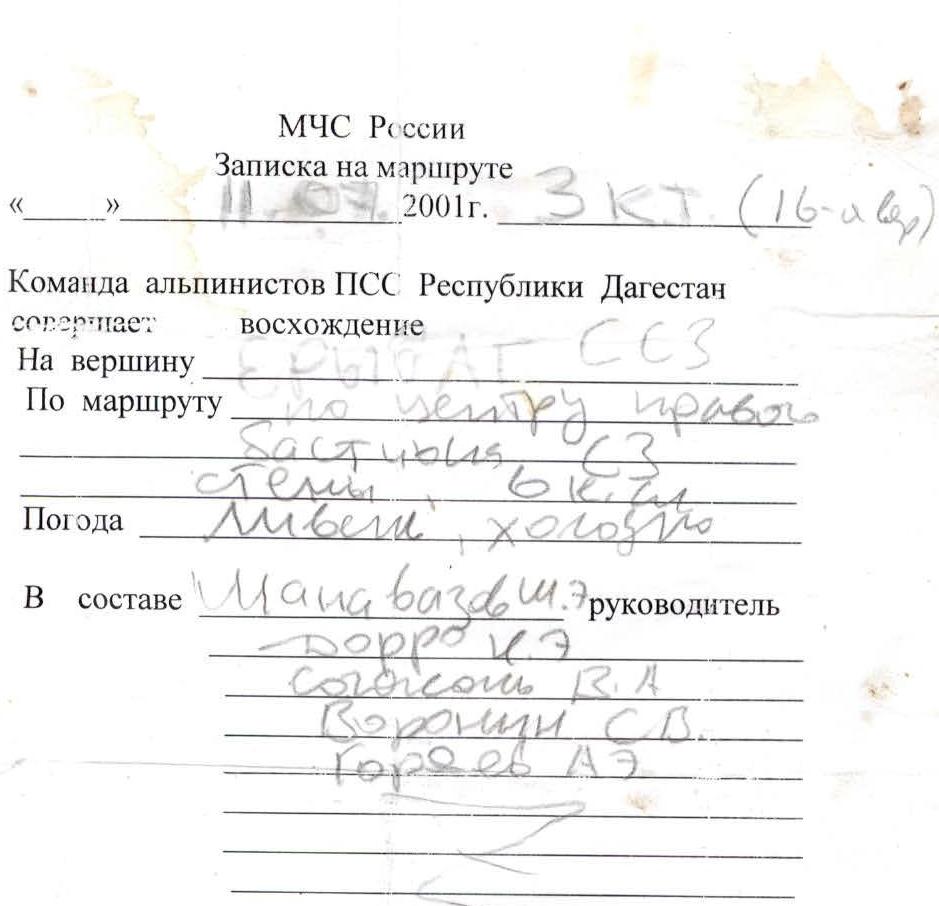 МЧС России
Записка на маршруте
«_____»____ 11.07. 2001г. 3 К.Т. (16-а вер)
Команда альпинистов ПСС Республики Дагестан
совершает восхождение
На вершину ЕРЫДАГ ССЗ
По маршруту по центру правого
бастиона СЗ
стены, 6 к.сл
Погода Ливень, холодно
В составе Манавазов Ш.Э руководитель
Дорро Н.Э
В.А
Воронин С.В.
Горяев А Э